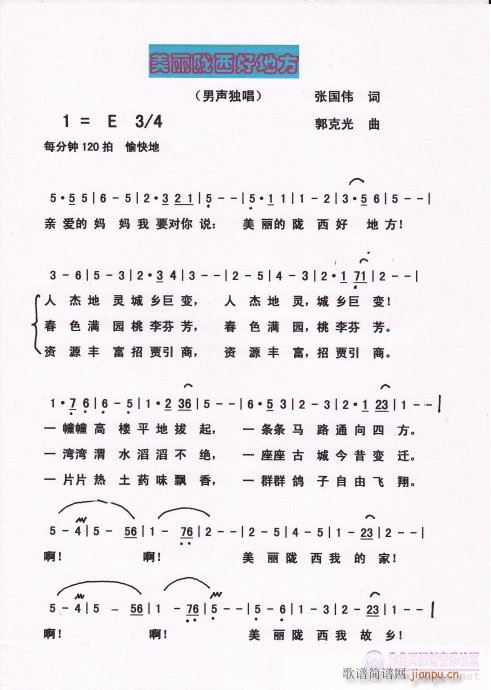 美丽陇西好地方
（男声独唱） 张国伟 词
1 = E 3/4 郭克光 曲
每分钟120拍 愉快地
5·5 5 | 6-5 | 2·3 2 1 | 5-- | 5·5 1 | 2-1 | 3·5 6 5 | 5-- |
亲爱的妈妈我要对你说： 美丽的陇西好 地方！
3-6 | 5-3 | 2·3 4 | 3-- | 3-6 | 5-3 | 2·1 7 1 | 1-- |
人杰地灵城乡巨变， 人杰地灵，城乡巨变！
春色满园桃李芬芳， 春色满园，桃李芬芳。
资源丰富招贾引商， 资源丰富，招贾引商。
1·7 6 | 6-5 | 2·1 2 3 6 | 5-- | 6·5 3 | 2-3 | 5·3 2 3 | 1-- |
一幢幢高 楼平地拔 起， 一条条马路通向四 方。
一湾湾渭 水滔滔不 绝， 一座座古城今昔变 迁。
一片片热 土药味飘 香， 一群群鸽子自由飞 翔。
5-4 | 5-56 | 1-76 | 2-- | 2-5 | 4-5 | 2-76 | 5-- |
啊！ 啊！ 美丽陇西我的家！
5-4 | 5-56 | 1-76 | 2-- | 2-5 | 4-3 | 2-23 | 1-- |
啊！ 啊！ 美丽陇西我故乡！
歌谱简谱网
jianpu.cn